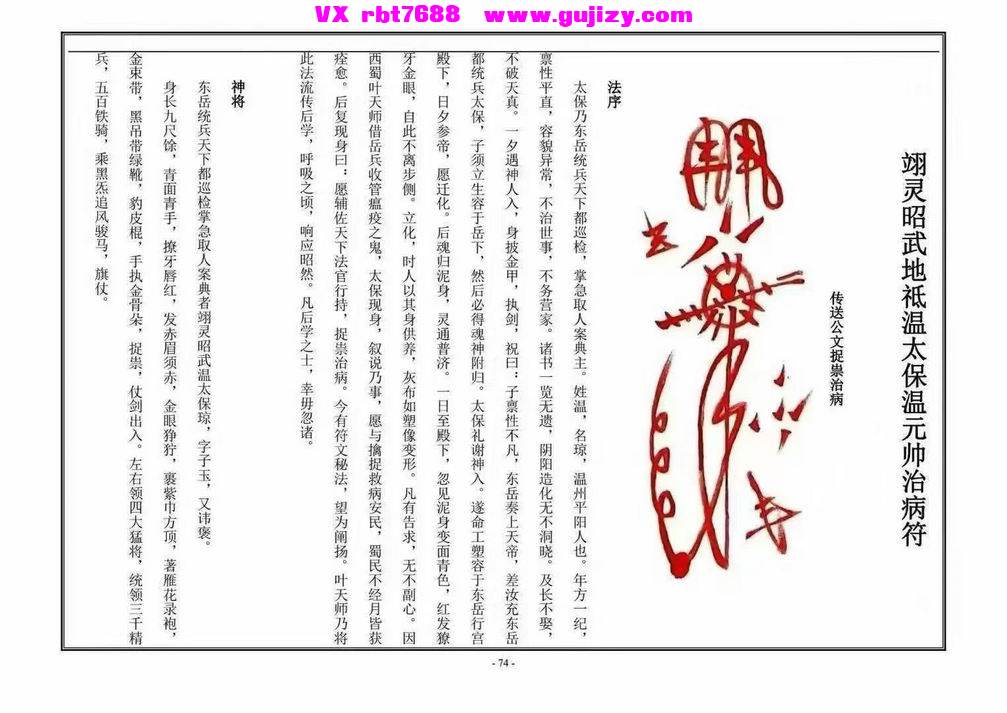 VX rbt7688 www.gujizy.com
翊灵昭武地祇温太保温元帅治病符
传送公文捉祟治病
法序
太保乃东岳统兵天下都巡检，掌急取人案典主。姓温，名琼，温州平阳人也。年方一纪，
禀性平直，容貌异常，不治世事，不务营家。诸书一览无遗，阴阳造化无不洞晓。及长不娶，
不破天真。一夕遇神人入，身披金甲，执剑，祝曰：子禀性不凡，东岳奏上天帝，差汝充东岳
都统兵太保，子须立生容于岳下，然后必得魂神附归。太保礼谢神入。遂命工塑容于东岳行宫
殿下，日夕参帝，愿迁化。后魂归泥身，灵通普济。一日至殿下，忽见泥身变面青色，红发獠
牙金眼，自此不离步侧。立化，时人以其身供养，灰布如塑像变形。凡有告求，无不副心。因
西蜀叶天师借岳兵收管瘟疫之鬼，太保现身，叙说乃事，愿与擒捉救病安民，蜀民不经月皆获
痊愈。后复现身曰：愿辅佐天下法官行持，捉祟治病。今有符文秘法，望为阐扬。叶天师乃将
此法流传后学，呼吸之顷，响应昭然。凡后学之士，幸毋忽诸。
神将
东岳统兵天下都巡检掌急取人案典者翊灵昭武温太保琼，字子玉，又讳褒。
身长九尺馀，青面青手，撩牙唇红，发赤眉须赤，金眼狰狞，裹紫巾方顶，著雁花录袍，
金束带，黑吊带绿靴，豹皮棍，手执金骨朵，捉祟，仗剑出入。左右领四大猛将，统领三千精
兵，五百铁骑，乘黑炁追风骏马，旗仗。
- 74 -